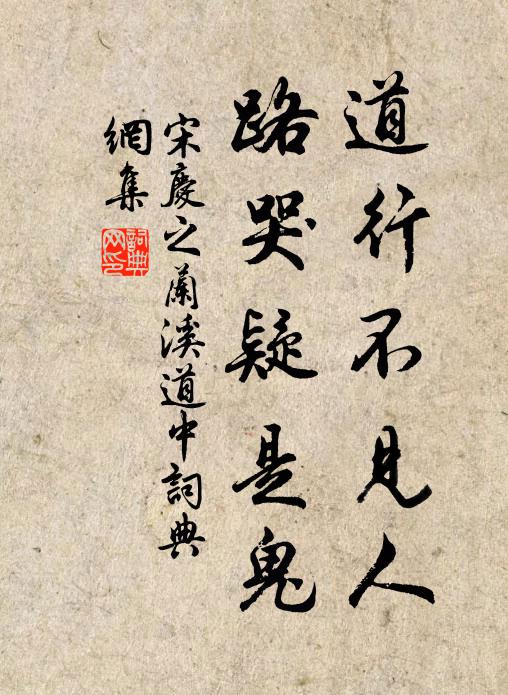 道行不見人
路哭疑是鬼
宋慶之蘭溪道中詞典
網集
詞典
网印